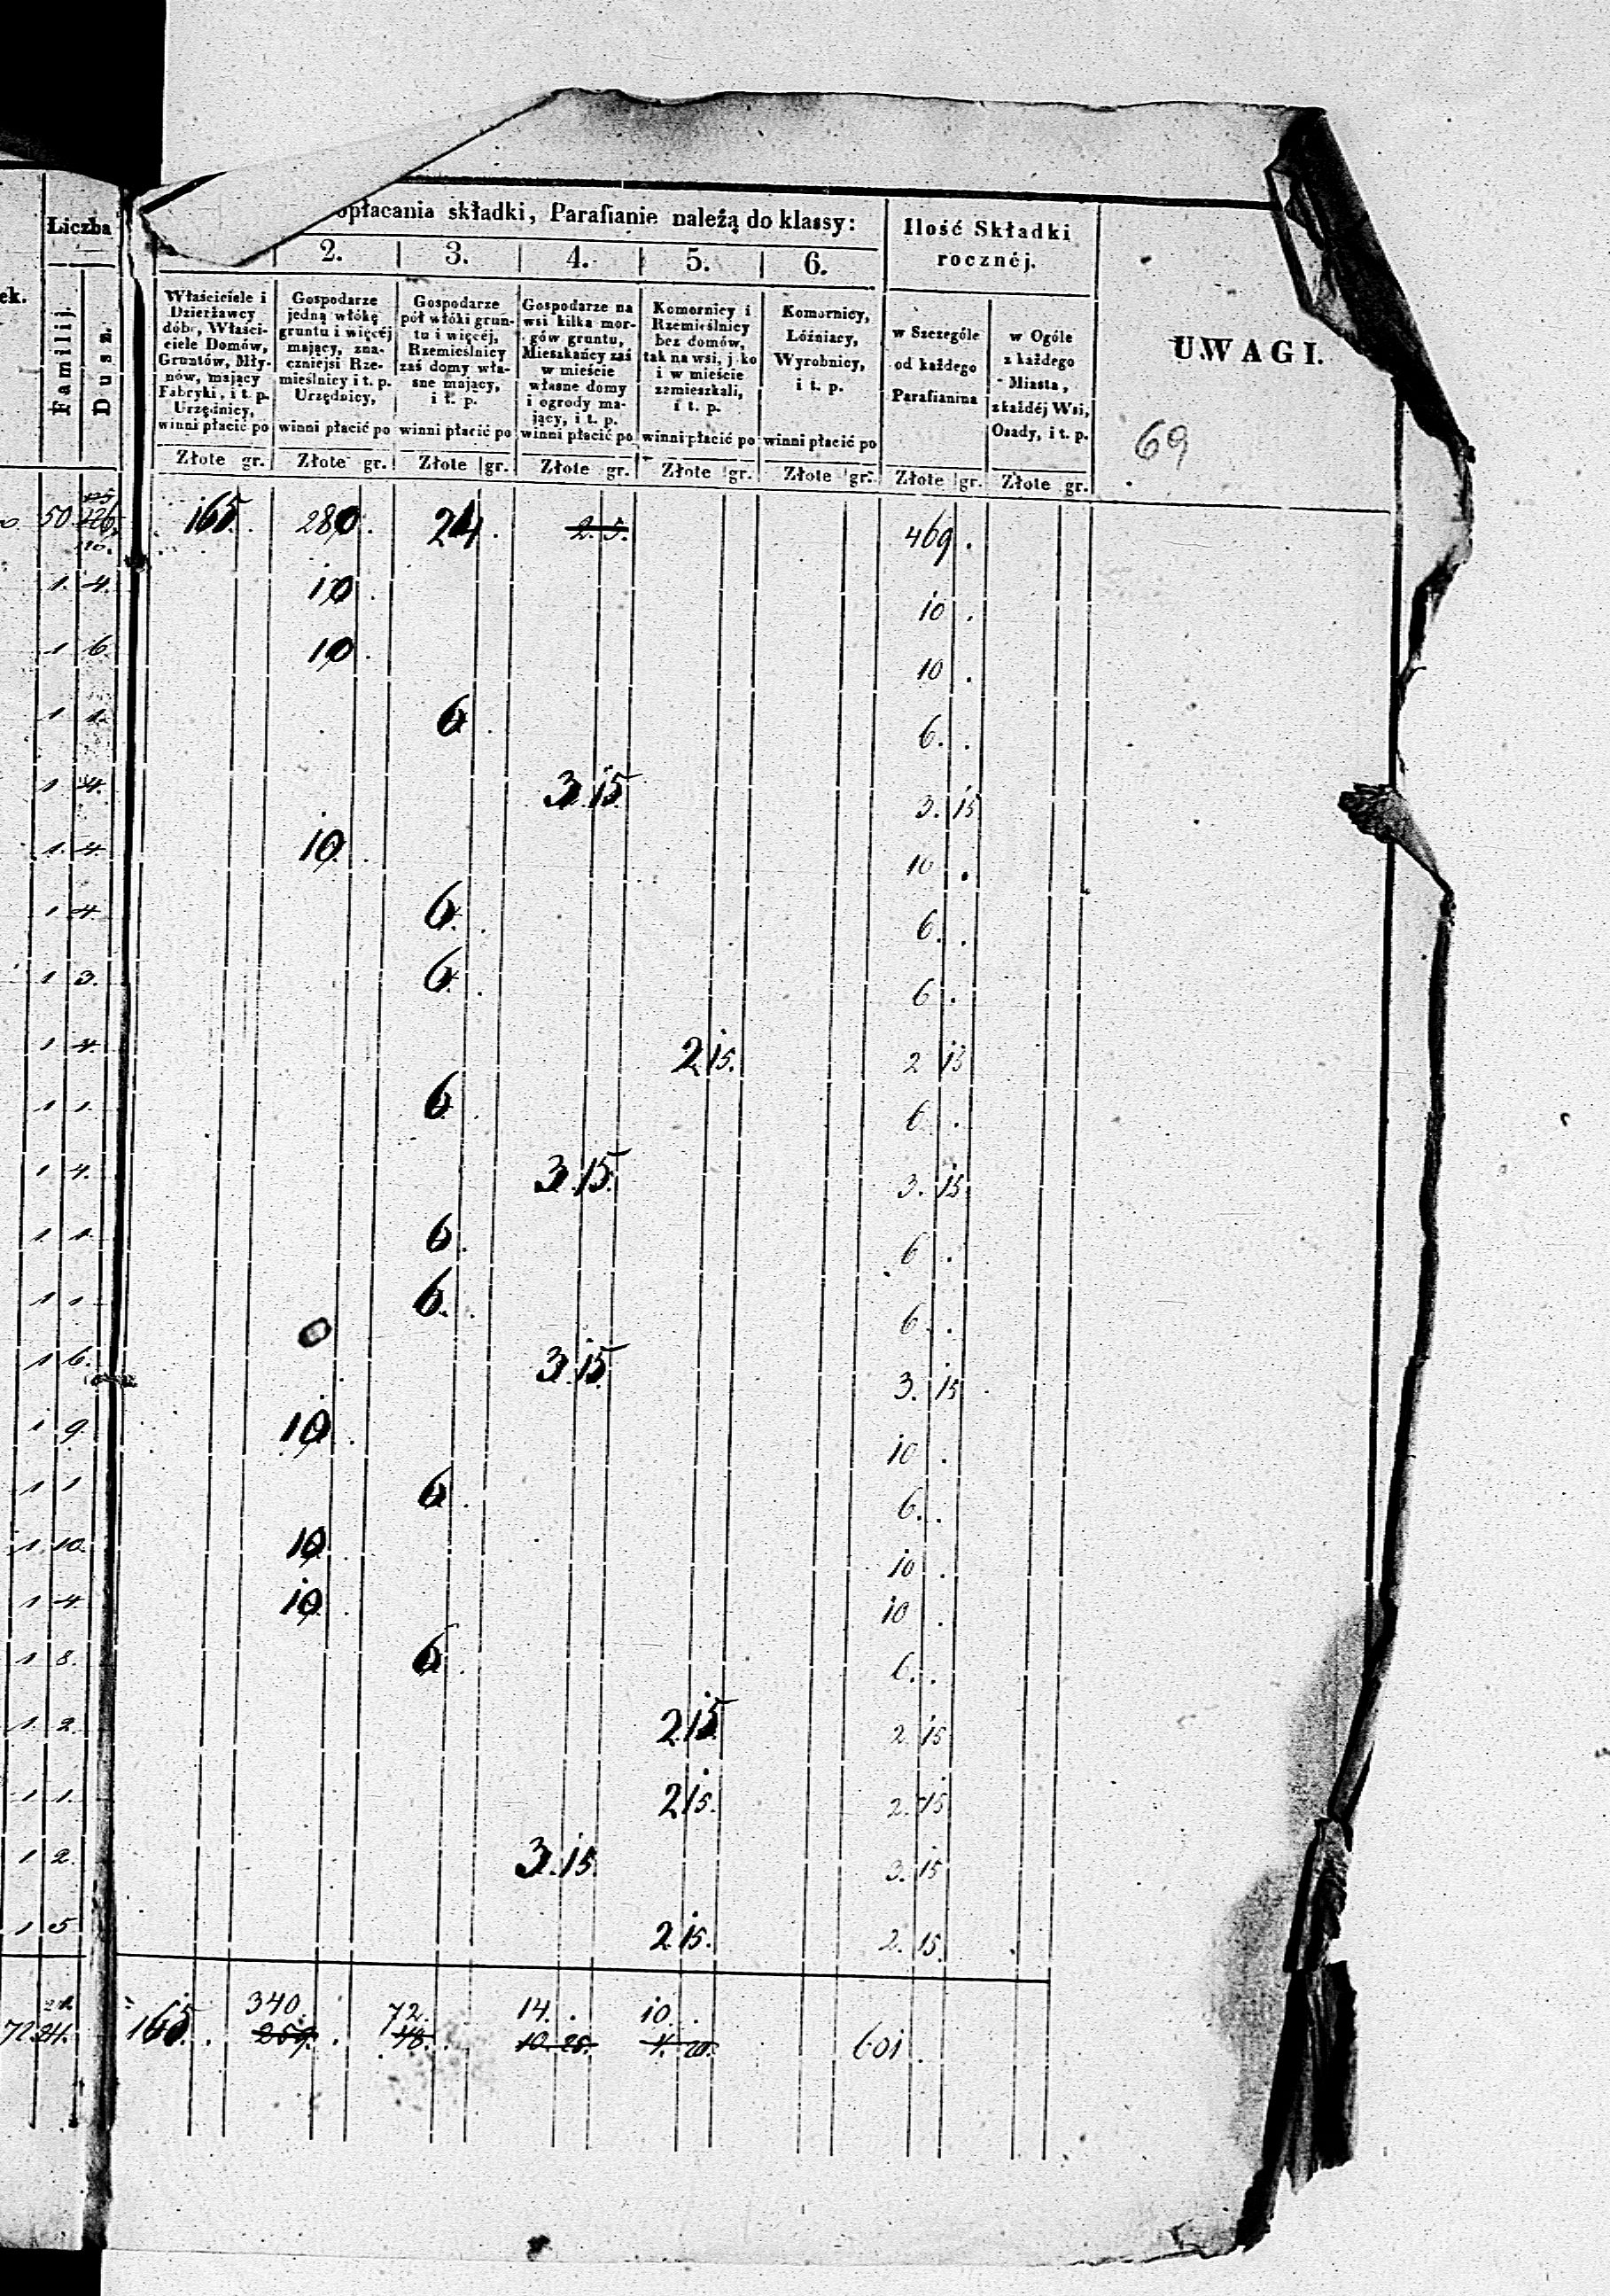 Liczba
opłacania składki, Parafianie należą do klassy:
Ilość Składki
rocznéj.
2. 3. 4. 5. 6.
ek.
Familij.
Dusz.
Właściciele i
Dzierżawcy
dóbr, Właści-
ciele Domów,
Gruntów, Mły-
nów, mający
Fabryki, i t. p.
Urzędnicy,
winni płacić po
Gospodarze
jedną włókę
gruntu i więcéj
mający, zna-
czniejsi Rze-
mieślnicy i t. p.
Urzędnicy,
winni płacić po
Gospodarze
pół włóki grun-
tu i więcéj,
Rzemieślnicy
zaś domy wła-
sne mający,
i t. p.
winni płacić po
Gospodarze na
wsi kilka mor-
gów gruntu,
Mieszkańcy zaś
w mieście
własne domy
i ogrody ma-
jący, i t. p.
winni płacić po
Komornicy i
Rzemieślnicy
bez domów,
tak na wsi, jko
i w mieście
zamieszkali,
i t. p.
winni płacić po
Komornicy,
Lóźniacy,
Wyrobnicy,
i t. p.
winni płacić po
w Szczególe
od każdego
Parafianina
w Ogóle
z każdego
Miasta,
z każdéj Wsi,
Osady, i t. p.
UWAGI.
69
Złote gr. Złote gr. Złote gr. Złote gr. Złote gr. Złote gr. Złote gr. Złote gr.
50. 165. 280. 24. 2. 5. 469.
1. 4. 10. 10.
1 6. 10. 10.
1 1. 6. 6.
1 4. 3. 15. 3. 15
1. 4. 10. 10.
1 4. 6. 6.
1 3. 6. 6.
1 4. 2. 15. 2 15
1 1. 6. 6.
1 4. 3. 15. 3. 15
1. 1. 6. 6.
1 1. 6. 6.
1 6. 3. 15. 3. 15
1 9. 10. 10.
1 1 6. 6.
1. 10. 10. 10.
1 4 10. 10.
1 8. 6. 6.
1. 2. 2. 15 2. 15
1 1. 2. 15. 2. 15
1 2. 3. 15. 3. 15
1 5. 2. 15. 2. 15.
340. 72. 14. 10.
72. 165. 259. 48. 10. 25. 601.